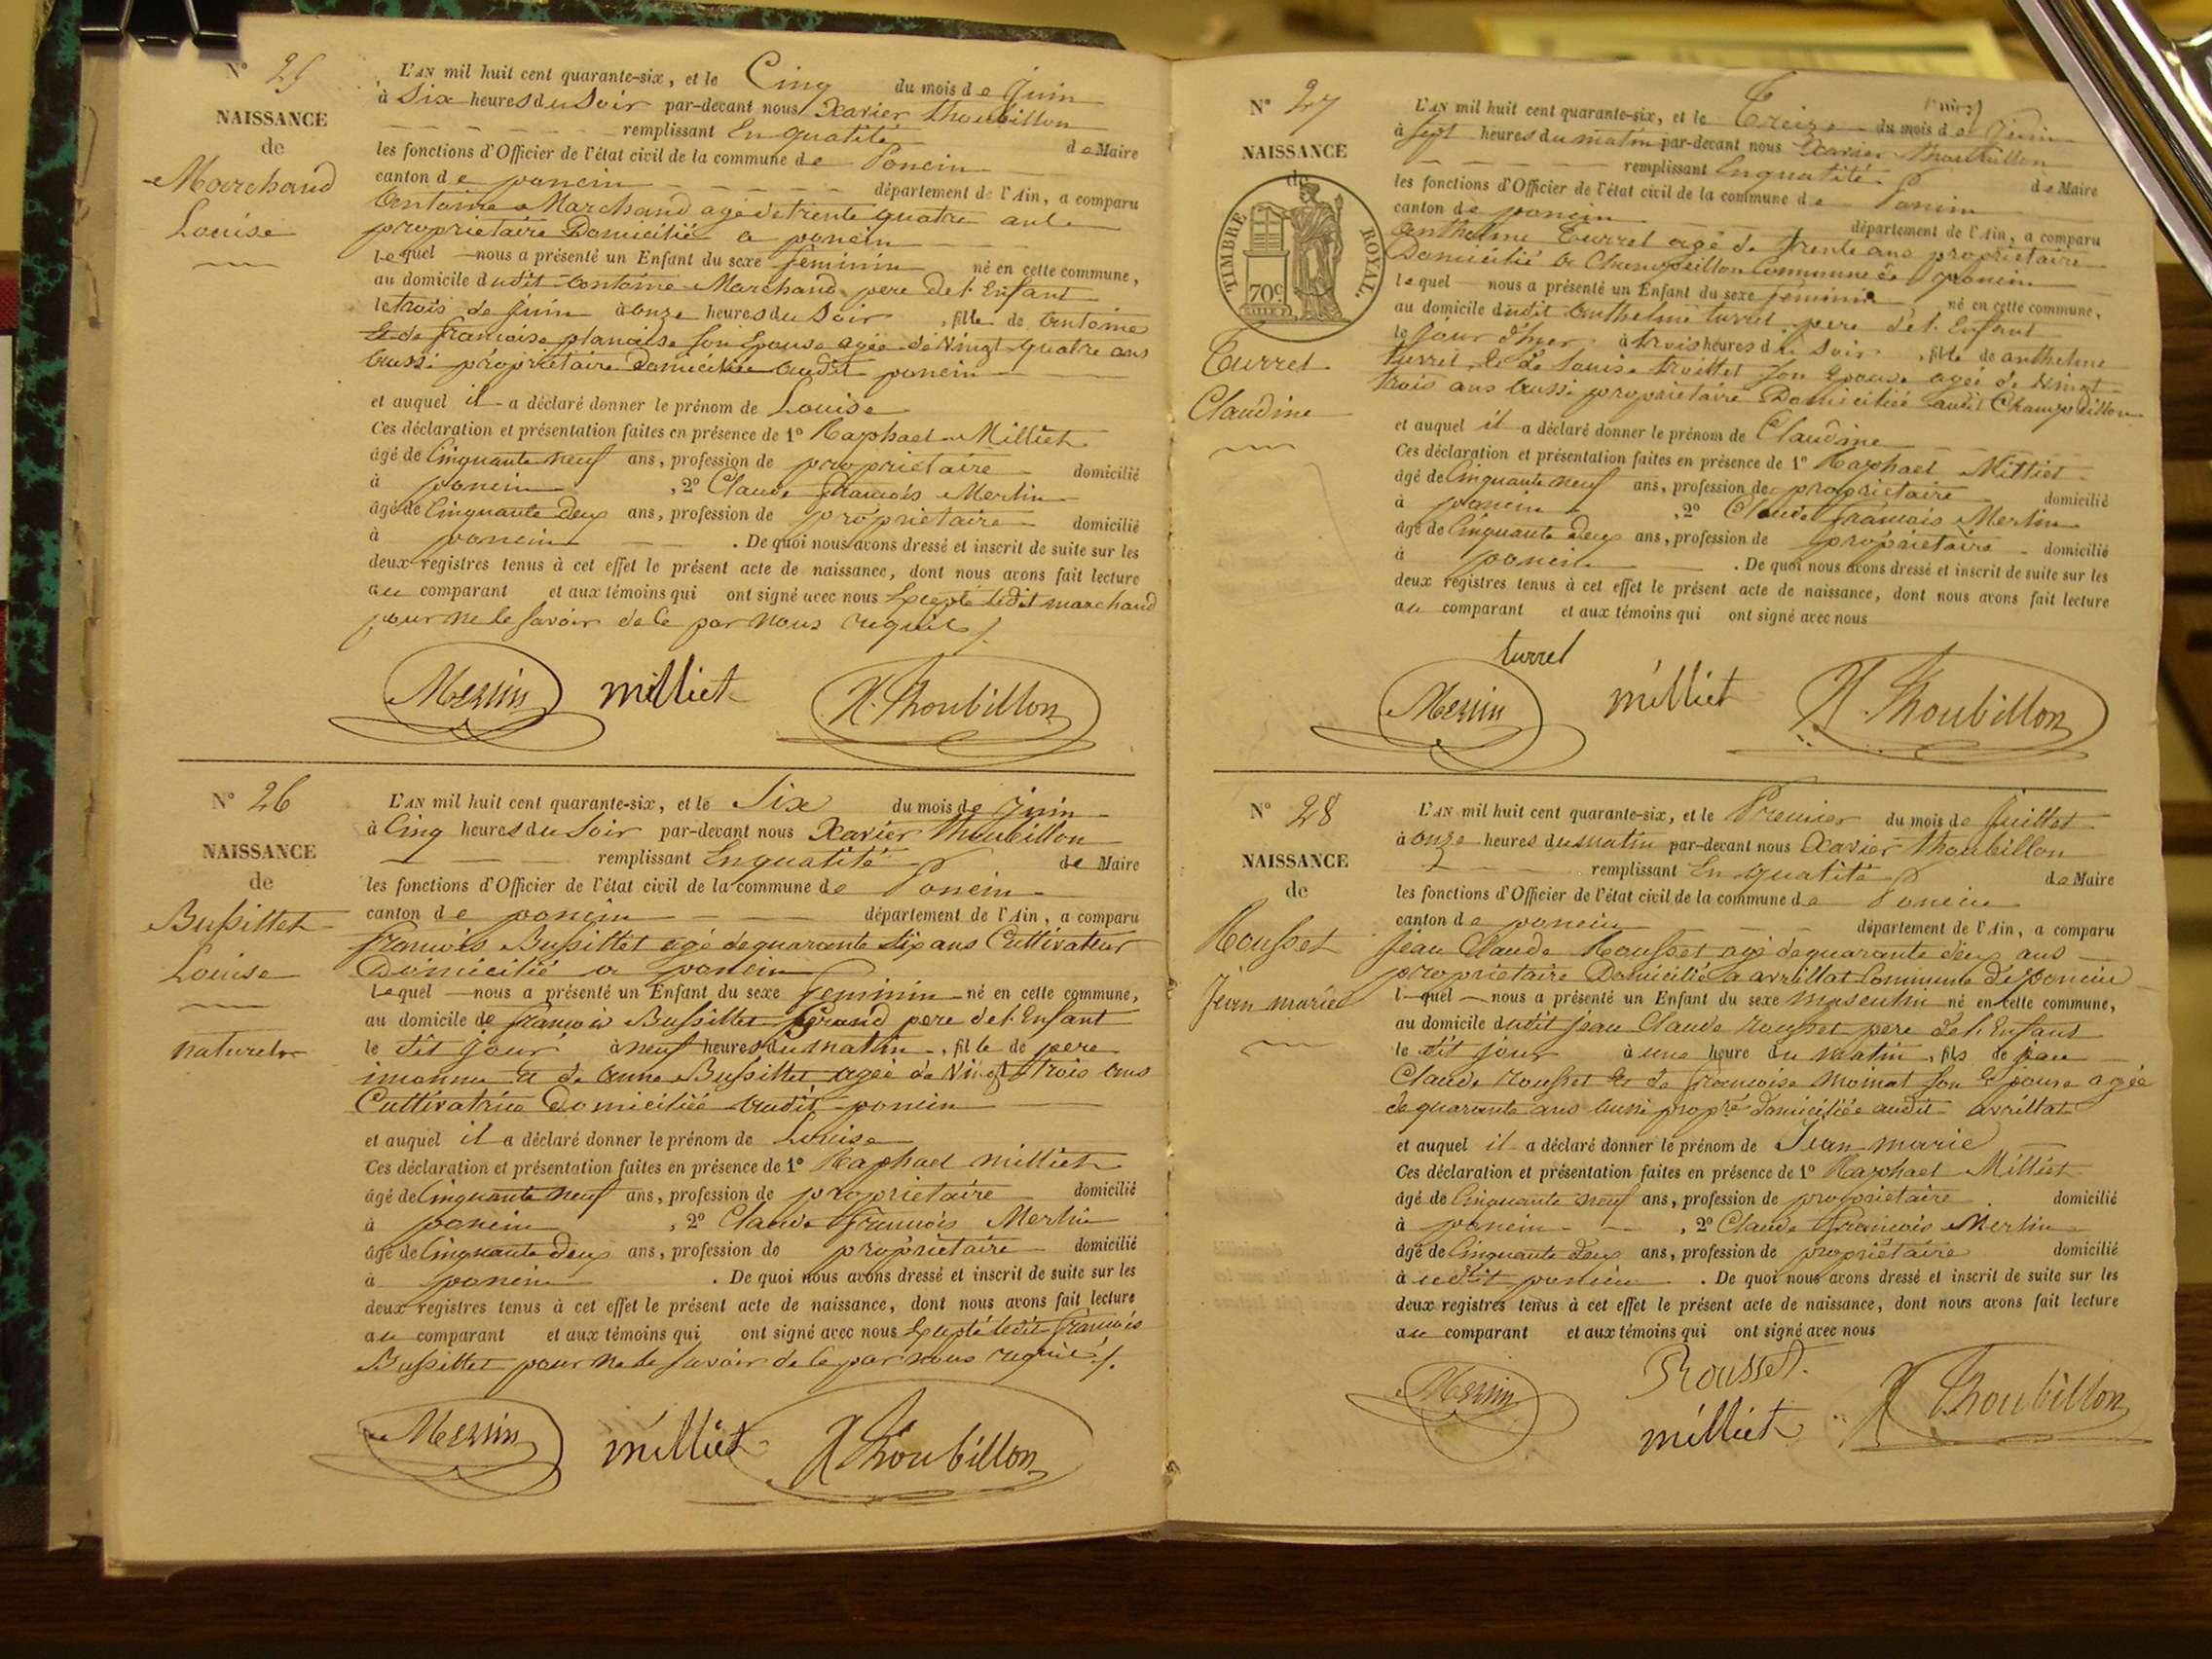 N° 25
NAISSANCE
de
Marchand
Louise
L'AN mil huit cent quarante-six, et le Cinq du mois de Juin
à Six heures du Soir par-devant nous Xavier Thoubillon
remplissant En qualité de Maire
les fonctions d'Officier de l'état civil de la commune de Poncin
canton de poncin département de l'Ain, a comparu
Antoine Marchand agé de trente quatre ans
propriétaire Domicilié a poncin
lequel nous a présenté un Enfant du sexe feminin né en cette commune,
au domicile dudit antoine Marchand pere de l'Enfant
le trois de Juin à onze heures du Soir, fille de antoine
Et de francoise planaise Son Epouse agée de Vingt quatre ans
aussi propriétaire Domiciliée audit poncin
et auquel il a déclaré donner le prénom de Louise
Ces déclaration et présentation faites en présence de 1° Raphael Milliet
âgé de Cinquante neuf ans, profession de propriétaire domicilié
à poncin, 2° Claude francois Merlin
âgé de Cinquante deux ans, profession de propriétaire domicilié
à poncin. De quoi nous avons dressé et inscrit de suite sur les
deux registres tenus à cet effet le présent acte de naissance, dont nous avons fait lecture
au comparant et aux témoins qui ont signé avec nous Excepté ledit marchand
pour ne le Savoir de Ce par nous requis ./.
Merlin milliet X. Thoubillon
N° 26
NAISSANCE
de
Bussillet
Louise
naturelle
L'AN mil huit cent quarante-six, et le Six du mois de Juin
à Cinq heures du Soir par-devant nous Xavier Thoubillon
remplissant En qualité de Maire
les fonctions d'Officier de l'état civil de la commune de Poncin
canton de poncin département de l'Ain, a comparu
francois Bussillet agé de quarante Six ans Cultivateur
Domicilié a poncin
lequel nous a présenté un Enfant du sexe feminin né en cette commune,
au domicile de francois Bussillet Grand pere de l'Enfant
le dit jour à neuf heures du matin, fille de pere
inconnu Et de anne Bussillet agée de Vingt trois ans
Cultivatrice Domiciliée audit poncin
et auquel il a déclaré donner le prénom de Louise
Ces déclaration et présentation faites en présence de 1° Raphael milliet
âgé de Cinquante neuf ans, profession de propriétaire domicilié
à poncin, 2° Claude francois Merlin
âgé de Cinquante deux ans, profession de propriétaire domicilié
à poncin. De quoi nous avons dressé et inscrit de suite sur les
deux registres tenus à cet effet le présent acte de naissance, dont nous avons fait lecture
au comparant et aux témoins qui ont signé avec nous Excepté ledit francois
Bussillet pour ne le Savoir de Ce par nous requis ./.
Merlin milliet X Thoubillon
N° 27
NAISSANCE
de
TIMBRE ROYAL.
70c
Turrel
Claudine
L'AN mil huit cent quarante-six, et le Treize du mois de Juin
à Sept heures du matin par-devant nous Xavier Thoubillon
remplissant En qualité de Maire
les fonctions d'Officier de l'état civil de la commune de Poncin
canton de poncin département de l'Ain, a comparu
anthelme Turrel agé de trente ans propriétaire
Domicilié a Champeillon Commune de poncin
lequel nous a présenté un Enfant du sexe féminin né en cette commune,
au domicile dudit anthelme turrel pere de l'Enfant
le jour d'hier à trois heures du Soir, fille de anthelme
turrel, Et de louise troillet Son Epouse agée de Vingt
trois ans aussi propriétaire Domiciliée audit Champeillon
et auquel il a déclaré donner le prénom de Claudine
Ces déclaration et présentation faites en présence de 1° Raphael Milliet
âgé de Cinquante neuf ans, profession de propriétaire domicilié
à poncin, 2° Claude francois Merlin
âgé de Cinquante deux ans, profession de propriétaire domicilié
à poncin. De quoi nous avons dressé et inscrit de suite sur les
deux registres tenus à cet effet le présent acte de naissance, dont nous avons fait lecture
au comparant et aux témoins qui ont signé avec nous
turrel
Merlin milliet X. Thoubillon
N° 28
NAISSANCE
de
Rousset
Jean marie
L'AN mil huit cent quarante-six, et le Premier du mois de Juillet
à onze heures du matin par-devant nous Xavier Thoubillon
remplissant En qualité de Maire
les fonctions d'Officier de l'état civil de la commune de Poncin
canton de poncin département de l'Ain, a comparu
Jean Claude Rousset agé de quarante deux ans
propriétaire Domicilié a avrillat Commune de poncin
lequel nous a présenté un Enfant du sexe masculin né en cette commune,
au domicile dudit jean Claude rousset pere de l'Enfant
le dit jour à une heure du matin, fils de jean
Claude rousset Et de francoise Moinat Son Epouse agée
de quarante ans aussi propre domiciliée audit avrillat
et auquel il a déclaré donner le prénom de Jean marie
Ces déclaration et présentation faites en présence de 1° Raphael Milliet
âgé de Cinquante neuf ans, profession de propriétaire domicilié
à poncin, 2° Claude francois Merlin
âgé de Cinquante deux ans, profession de propriétaire domicilié
à udit poncin. De quoi nous avons dressé et inscrit de suite sur les
deux registres tenus à cet effet le présent acte de naissance, dont nous avons fait lecture
au comparant et aux témoins qui ont signé avec nous
Rousset.
Merlin milliet X Thoubillon